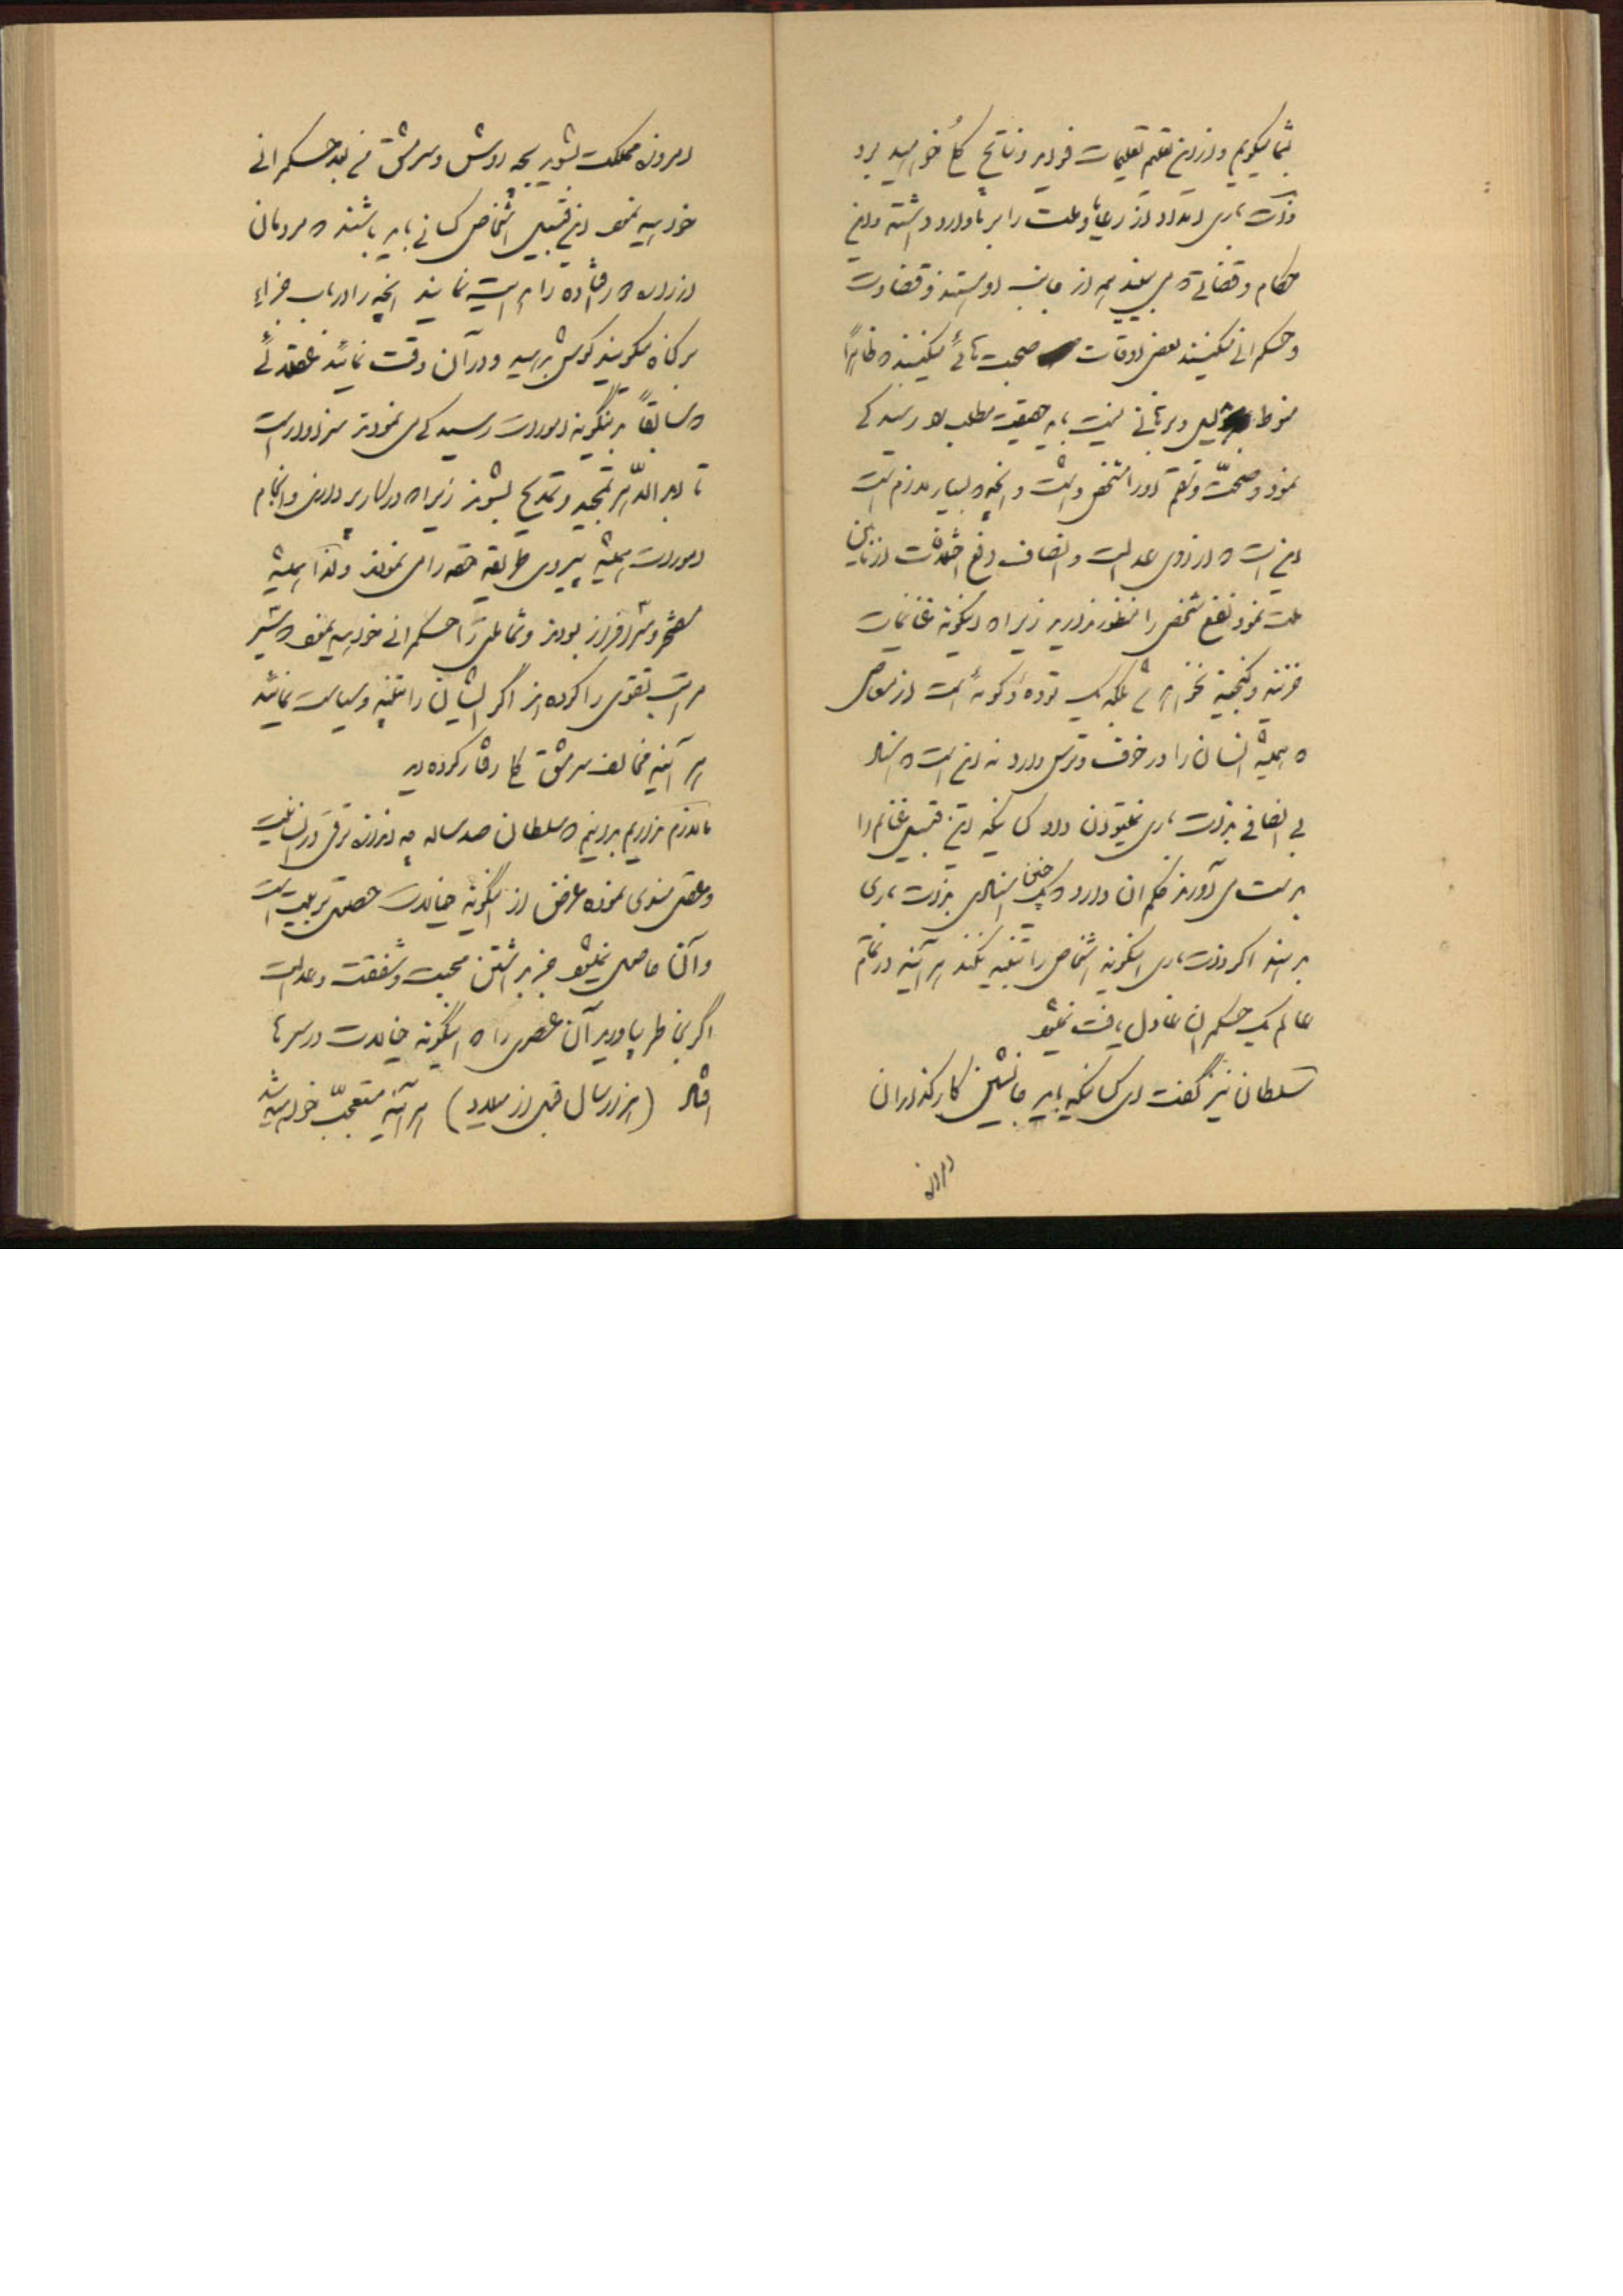 بشما میگویم و از این تعلیم تعلیمات فواید و نتایج کلی خواهید برد
ذات باری امتداد از رعایا و ملت را برپا وارد داشته و این
حکام و قضاتی که می بینید همه از جانب او هستند و قضاوت
و حکمرانی میکنند بعضی اوقات صحبت هائی میکنند که ظاهراً
منوط بدلیل و برهانی نیست باید حقیقت مطلب را رسیدگی
نمود و صحت و سقم او را مشخص داشت و آنچه که بسیار لازم است
این است که از روی عدالت و انصاف رفع اختلافات از مابین
ملت نمود نفع شخصی را منظور ندارید زیرا که اینگونه غنائمات
خزینه و گنجینه نخواهد شد بلکه یک توده است از معاصی
که همیشه انسان را در خوف و ترس دارد نه این است که اسناد
بی انصافی بذات باری نمیتوان داد کسانیکه این قبیل غنائم را
بدست می آورند حکم آن دارد که یک چنین اسنادی بذات باری
بدهند اگر ذات باری اینگونه اشخاص را تنبیه نکند هر آینه در تمام
عالم یک حکمران عادل یافت نمیشود
سلطان نیز گفت ای کسانیکه باید جانشین کارگذاران
امروزه
امروزه مملکت بشوید بچه روش و سرمشق من بعد حکمرانی
خواهید نمود این قبیل اشخاص کسانی باید باشند که مردمان
از راه در رفته را هدایت نمایند آنچه را در باب جزای
هر گناه میگویند گوش بدهید و در آن دقت نمائید عقلائی
که سابقاً بدینگونه امورات رسیدگی می نمودند سزاوار است
تا ابد الدهر تمجید و تمدیح بشوند زیرا که در کار پردازی و انجام
امورات همیشه پیروی طریقه حقه را می نمودند و لهذا همیشه
مفتخر و سرافراز بودند و شما ملتی را حکمرانی خواهید نمود که بیشتر
مراتب تقوی را کرده اند اگر ایشان را تنبیه و سیاست نمائید
هر آینه مخالف سرمشق ما رفتار کرده اید
ما لازم نداریم بدانیم که سلطان صد ساله چه اندازه ترقی در انسانیت
و عقل معنوی نموده غرض از اینگونه خیالات حصول تربیت است
و آن حاصل نمیشود جز بداشتن محبت و شفقت و عدالت
اگر بخاطر بیاورید آن عصری را که اینگونه خیالات در سرها
افتاد (هزار سال قبل از میلاد) هر آینه متعجب خواهید شد